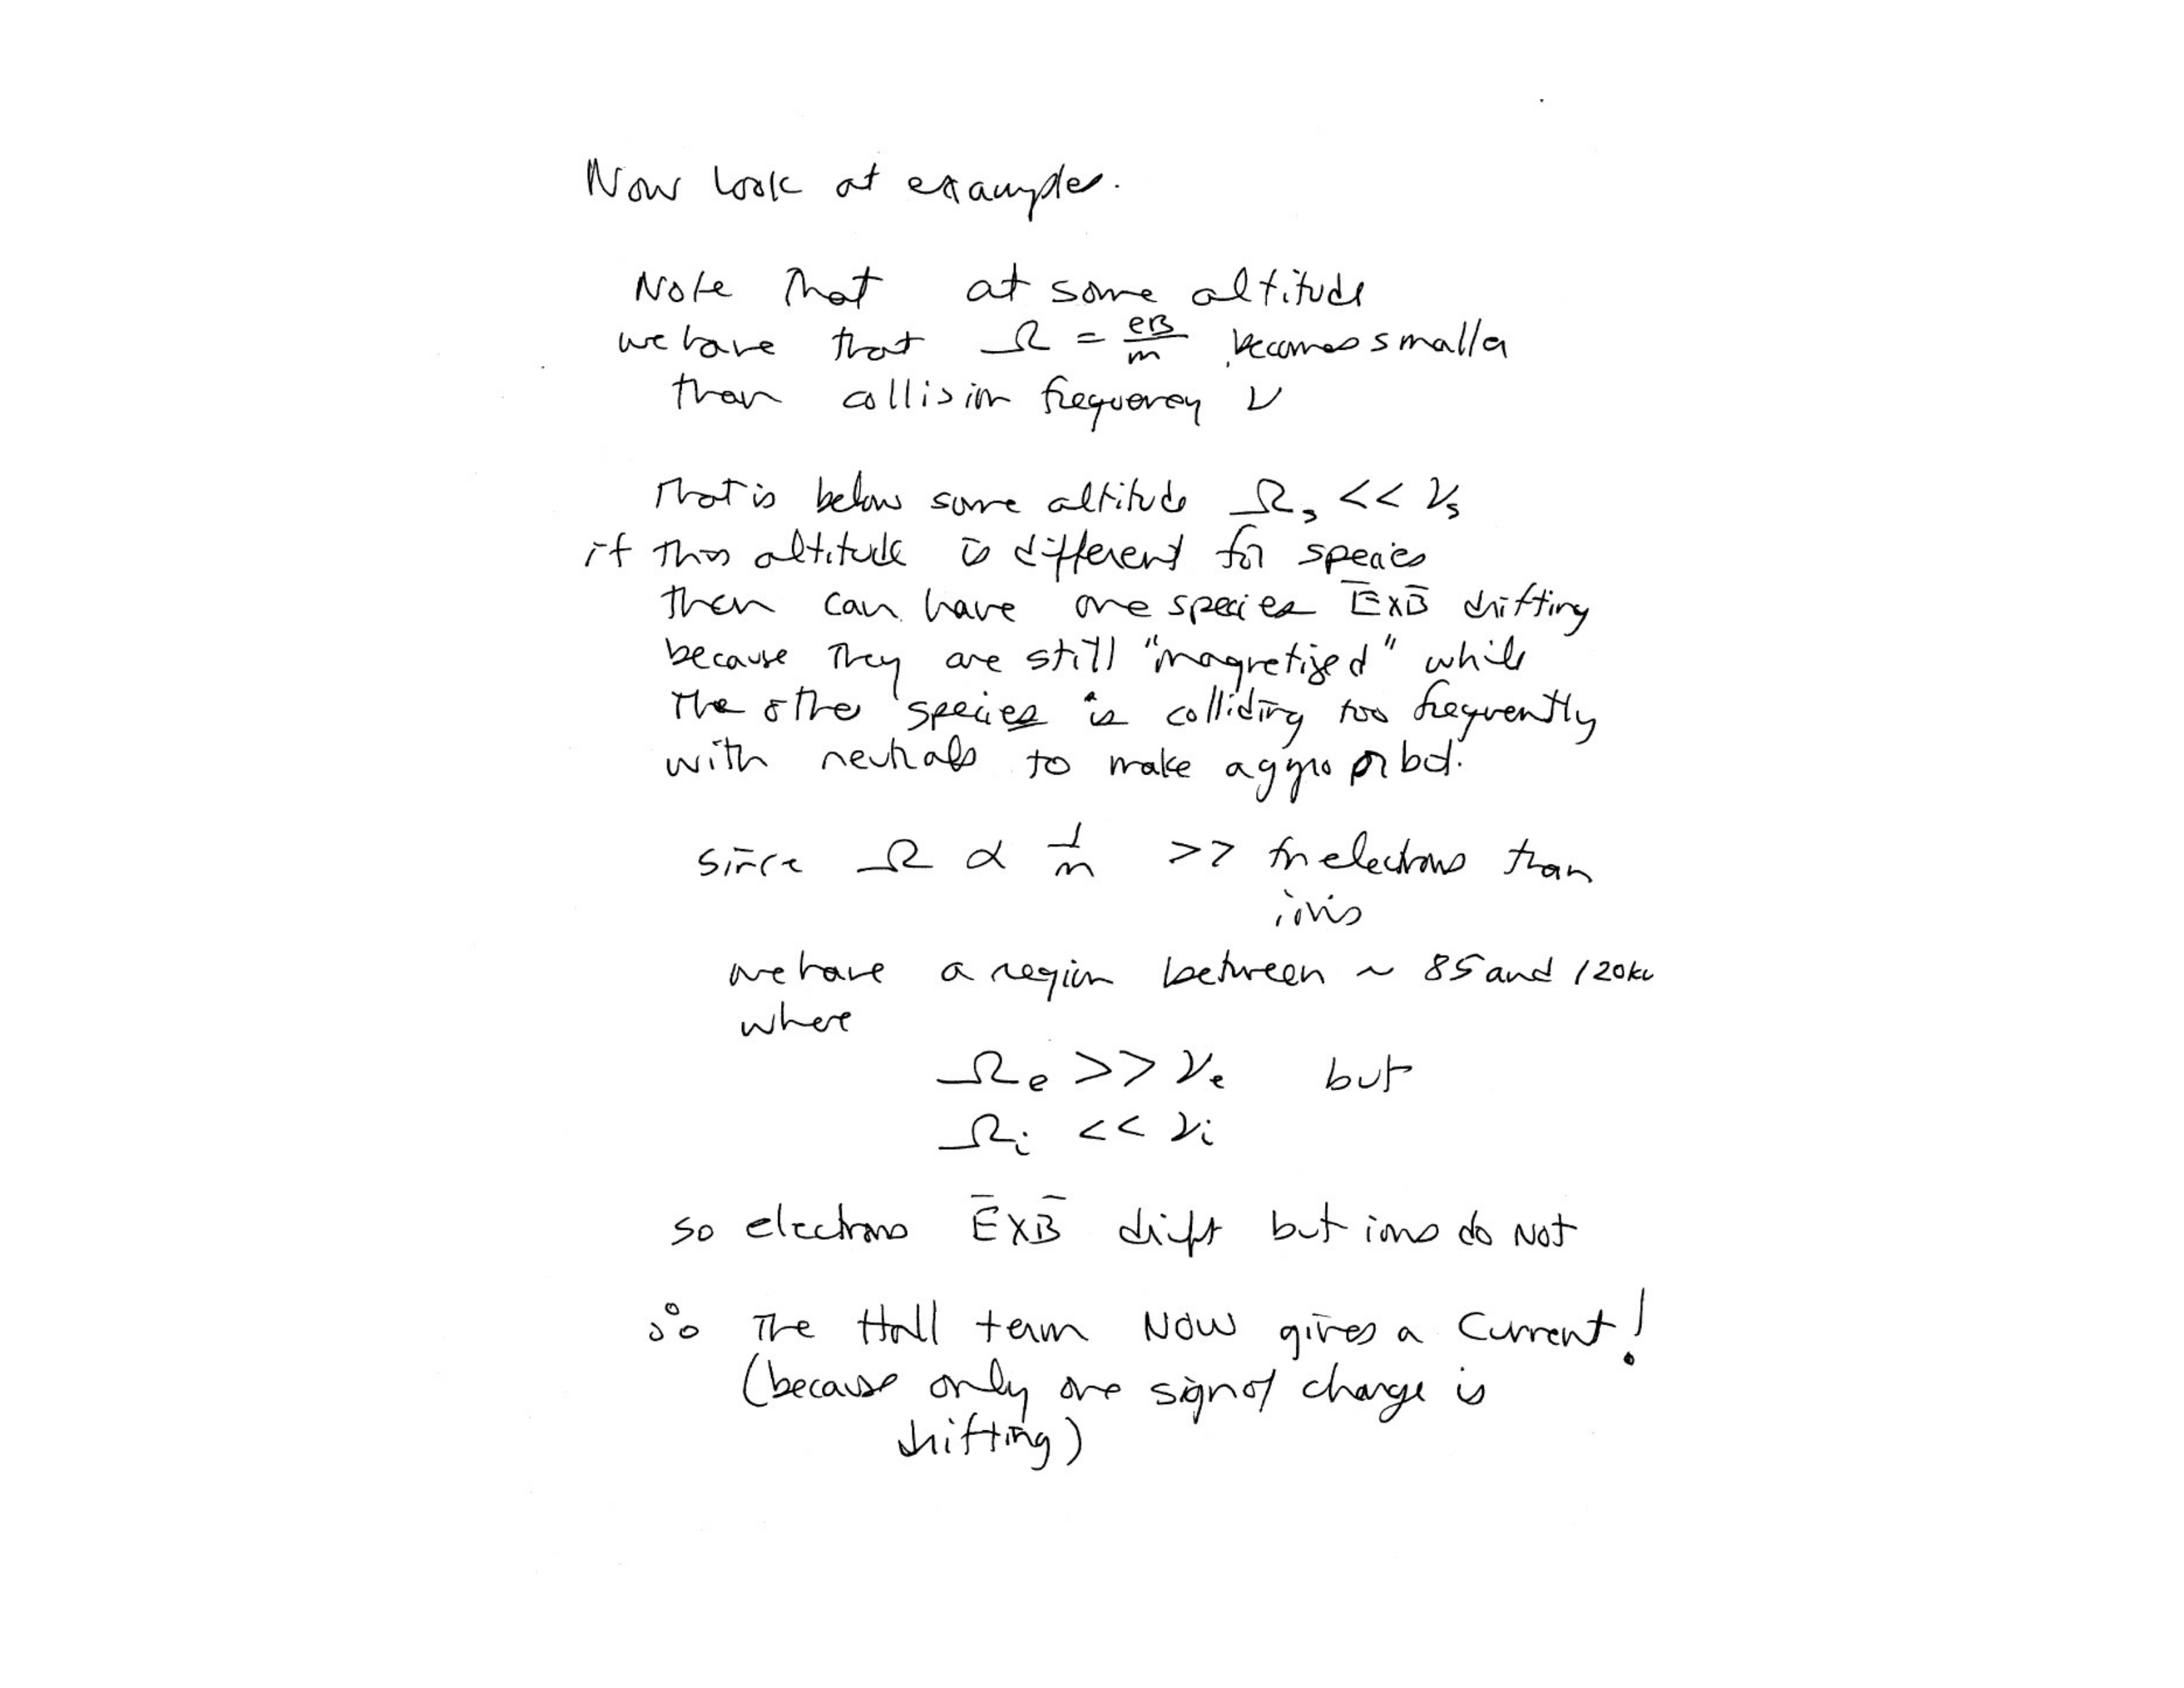 Now look at examples.
Note that at some altitude
we have that Ω = eB/m becomes smaller
than collision frequency ν
That is below some altitude Ωs << νs
if this altitude is different for species
then can have one species E̅xB̅ drifting
because they are still "magnetized" while
the other species is colliding too frequently
with neutrals to make a gyro orbit.
since Ω ∝ 1/m >> for electrons than
ions
we have a region between ~ 85 and 120km
where
Ωe >> νe but
Ωi << νi
so electrons E̅xB̅ drift but ions do Not
∴ The Hall term NOW gives a current!
(because only one sign of charge is
drifting)